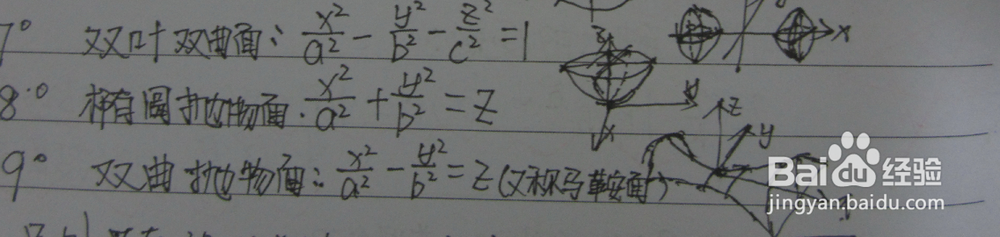 7° 双叶双曲面: x²/a² - y²/b² - z²/c² = 1
8° 椭圆抛物面. x²/a² + y²/b² = z
9° 双曲抛物面: x²/a² - y²/b² = z (又称马鞍面)
x
z
y
x
z
y
Bai du 经验
jingyan.baidu.com